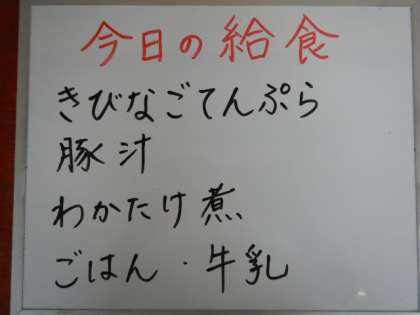 今日の給食
きびなごてんぷら
豚汁
わかたけ煮
ごはん・牛乳